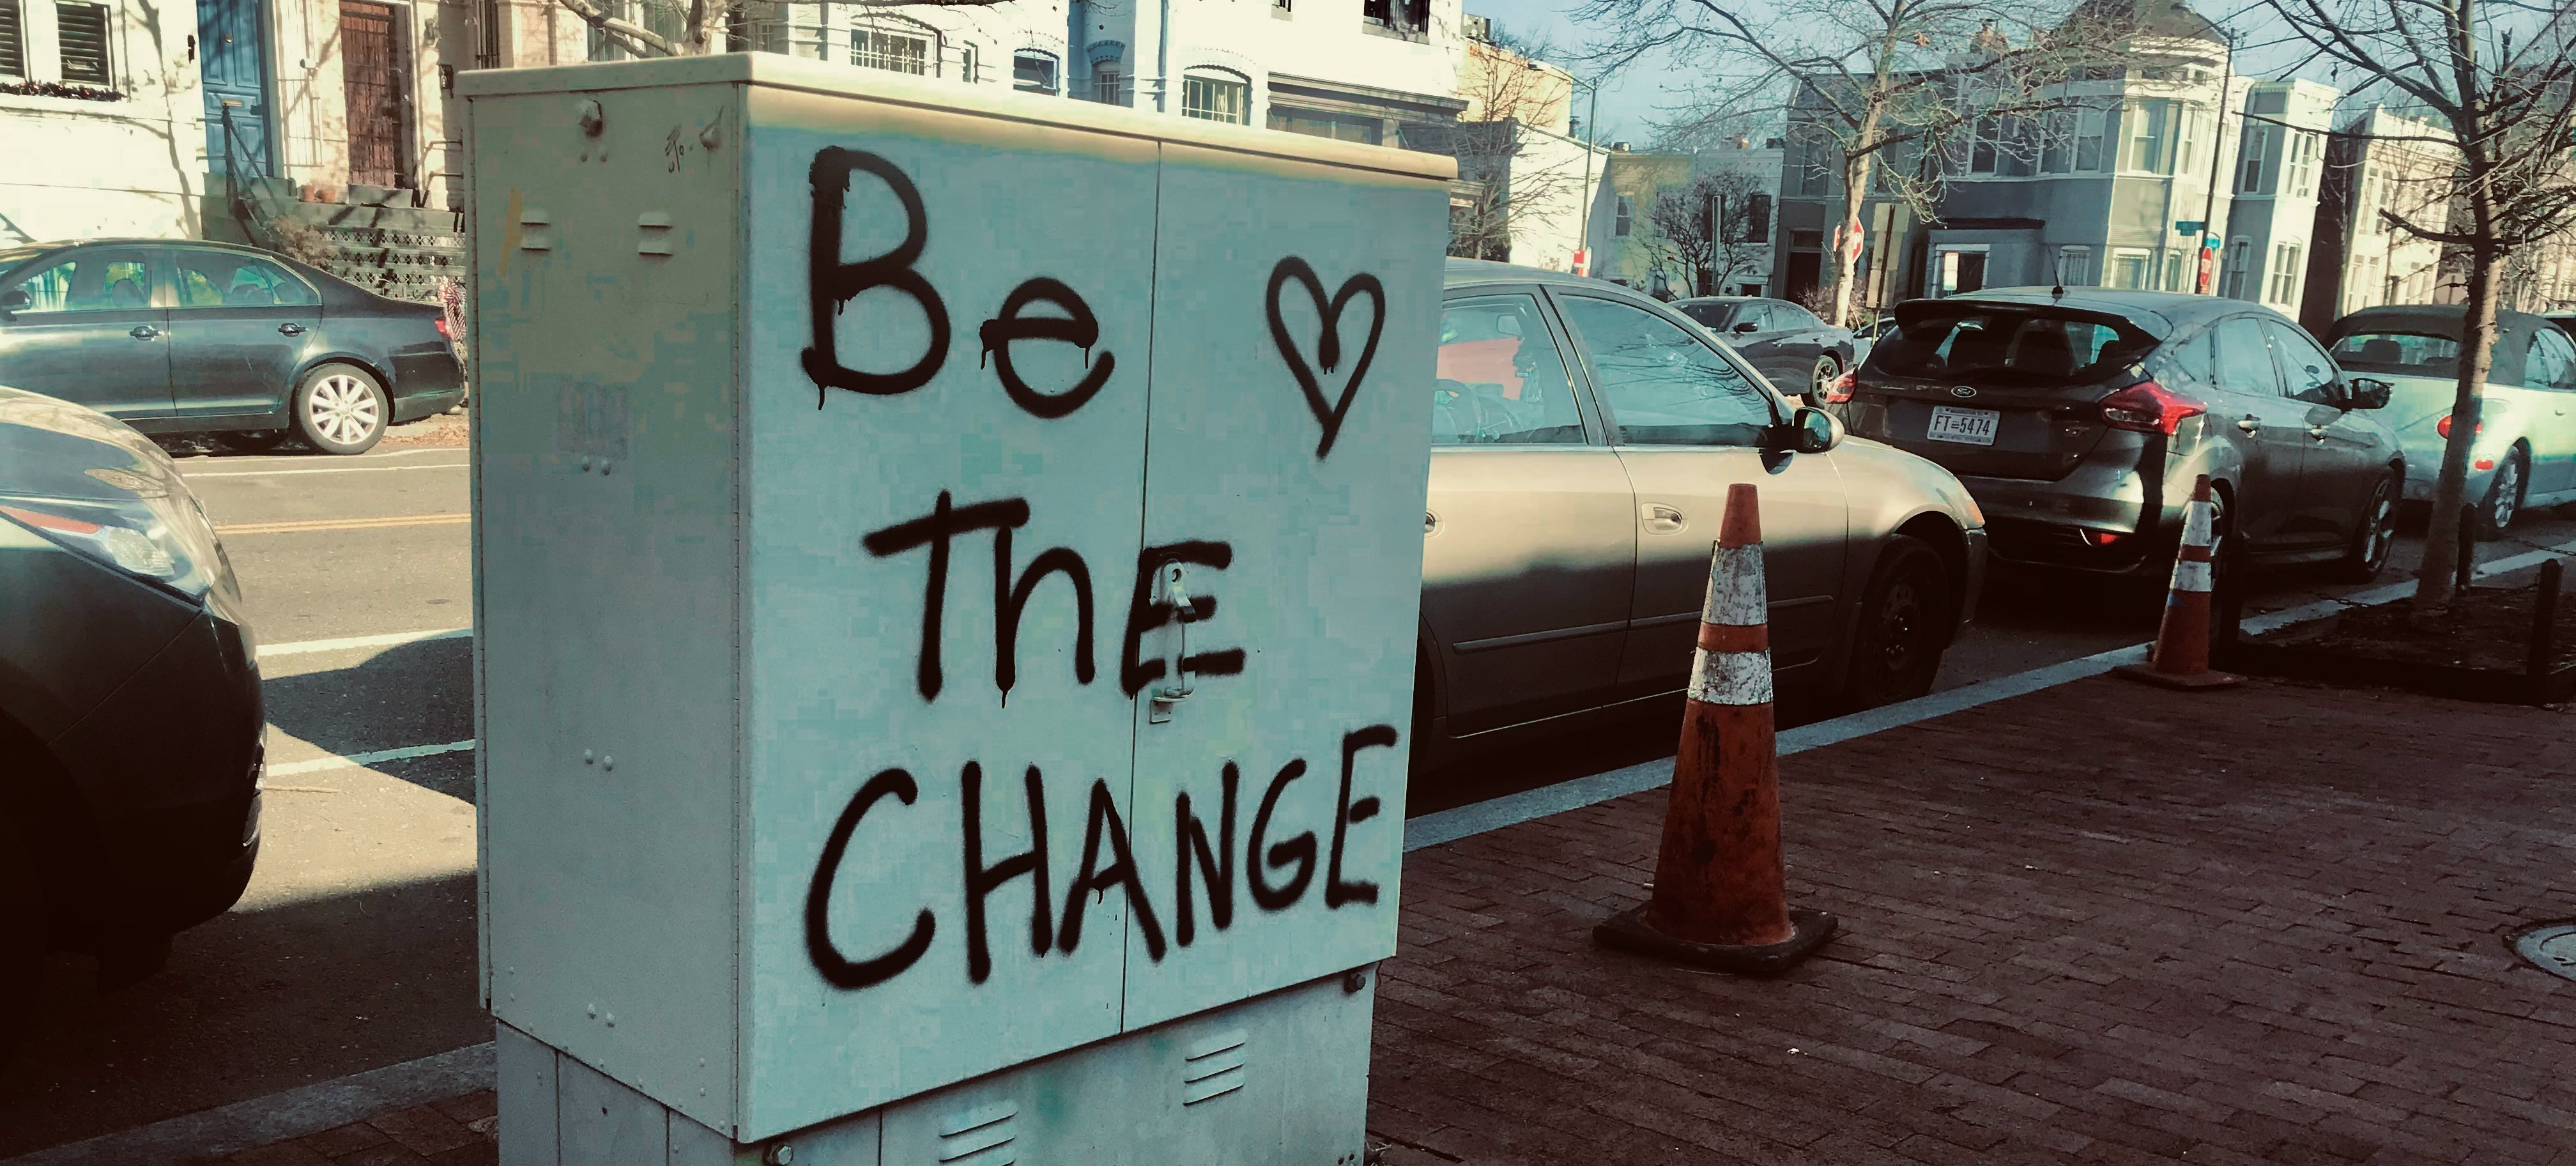 Be ♡
ThE
CHANGE
Ford
FT 5474